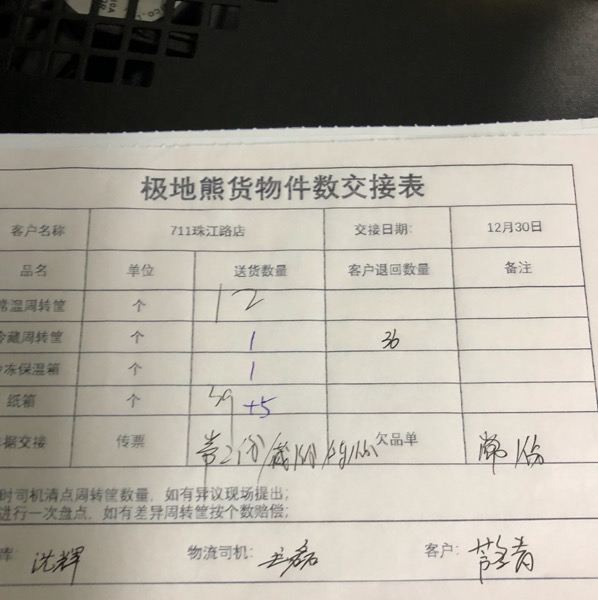 极地熊货物件数交接表
客户名称 711珠江路店 交接日期: 12月30日
品名 单位 送货数量 客户退回数量 备注
常温周转筐 个 12
冷藏周转筐 个 1 36
冷冻保温箱 个 1
纸箱 个 39 +5
单据交接 传票 常2份/ 欠品单 1份
时司机清点周转筐数量，如有异议现场提出；
进行一次盘点，如有差异周转筐按个数赔偿；
库: 沈辉 物流司机: 王磊 客户: